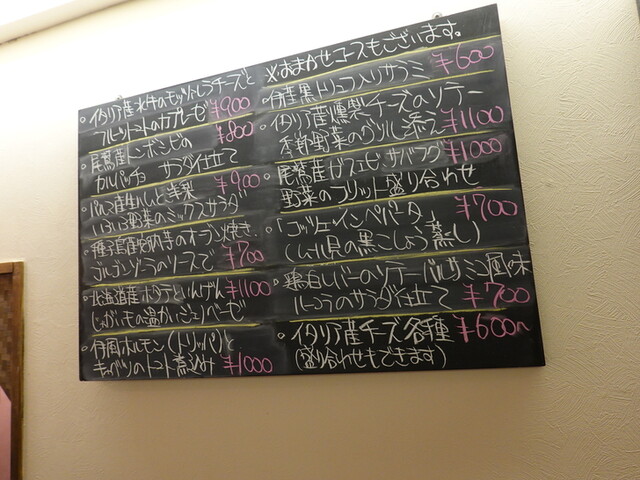 ・イタリア産水牛のモッツァレラチーズと
フルーツトマトのカプレーゼ ¥900
・尾鷲産トンボシビの ¥800
カルパッチョ サラダ仕立て
・パルマ産生ハムと洋梨 ¥900
いろいろ野菜のミックスサラダ
・種子島産安納芋のオーブン焼き
ゴルゴンゾーラのソースで ¥700
・北海道産ホタテといんげん ¥1100
じゃがいもの温かいジェノベーゼ
・伊風ホルモン(トリッパ)と
キャベツのトマト煮込み ¥1000
※おまかせコースもございます。
・伊産黒トリュフ入りサラミ ¥600
・イタリア産燻製チーズのソテー
季節野菜のグリル添え ¥1100
・尾鷲産ガスエビ サバフグ ¥1000
野菜のフリット盛り合わせ
・「コッツェ・インペパータ」 ¥700
(ムール貝の黒こしょう蒸し)
・鶏白レバーのソテー バルサミコ風味
ルーコラのサラダ仕立て ¥700
・イタリア産チーズ各種 ¥600〜
(盛り合わせもできます)